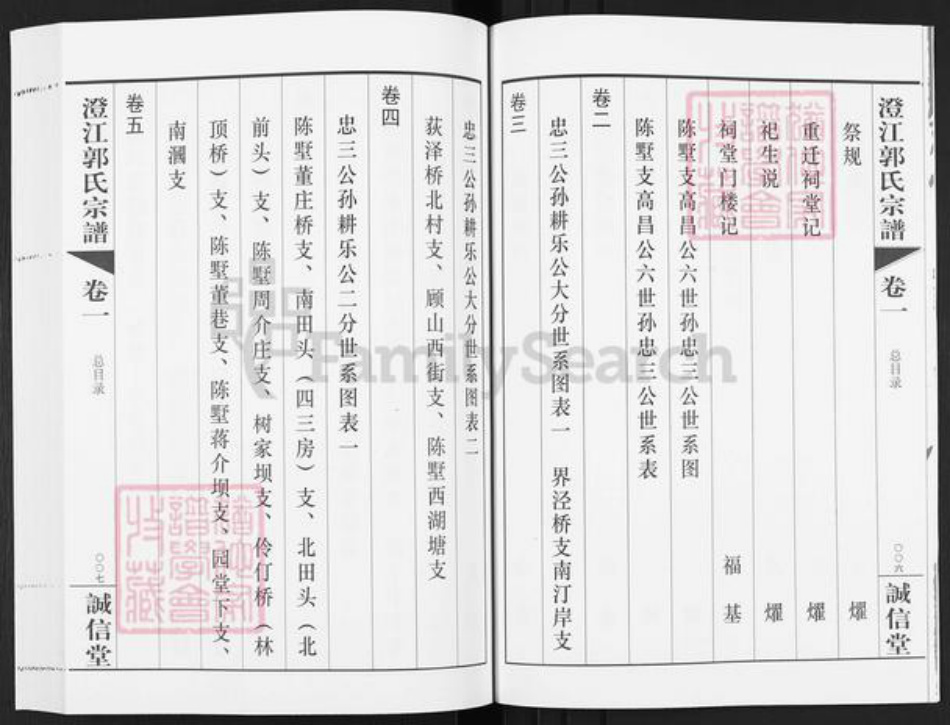 澄江郭氏宗譜
卷一
总目录
〇〇六
誠信堂
祭规 燿
重迁祠堂记 燿
祀生说 燿
祠堂门楼记 福基
陈墅支高昌公六世孙忠三公世系图
陈墅支高昌公六世孙忠三公世系表
卷二
忠三公孙耕乐公大分世系图表一 界泾桥支南汀岸支
卷三
忠三公孙耕乐公大分世系图表二
荻泽桥北村支、顾山西街支、陈墅西湖塘支
卷四
忠三公孙耕乐公二分世系图表一
陈墅董庄桥支、南田头（四三房）支、北田头（北
前头）支、陈墅周介庄支、树家坝支、伶仃桥（林
顶桥）支、陈墅董巷支、陈墅蒋介坝支、园堂下支、
南漍支
卷五
澄江郭氏宗譜
卷一
总目录
〇〇七
誠信堂
FamilySearch